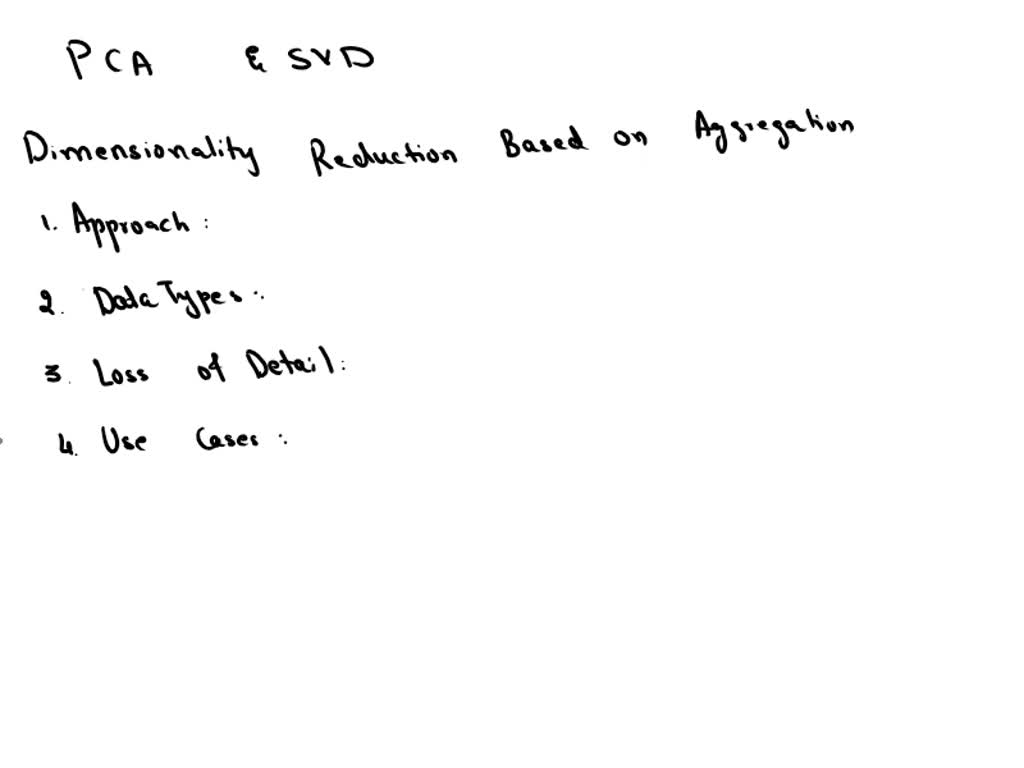 PCA & SVD
Dimensionality Reduction Based on Aggregation
1. Approach :
2. Data Types :
3. Loss of Detail :
4. Use Cases :